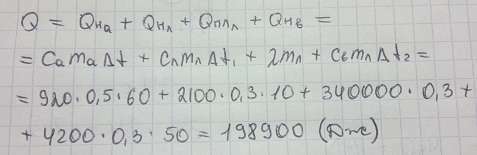 Q = Qна + Qнл + Qплл + Qнв =
= CamaΔt + CлmлΔt₁ + λmл + CвmлΔt₂ =
= 920 · 0,5 · 60 + 2100 · 0,3 · 10 + 340000 · 0,3 +
+ 4200 · 0,3 · 50 = 198900 (Дж)